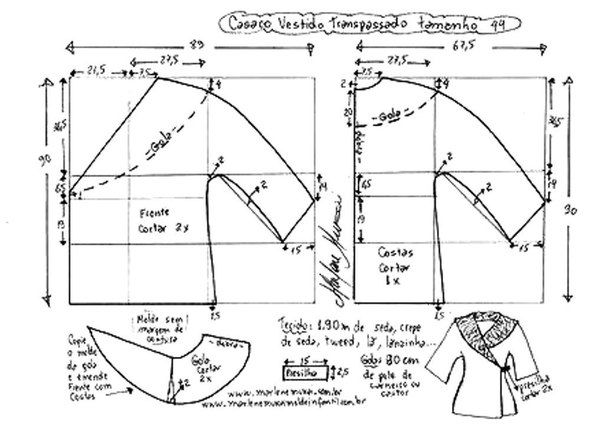 Casaco Vestido Transpassado tamanho 44
89
67,5
27,5
27,5
21,5
7,5
7,5
4
2
4
20
36,5
36,5
90
90
-Gola-
-Gola-
2
2
2
2
6,5
6,5
14
14
19
19
1
Frente
Cortar 2x
Costas
Cortar
1x
15
15
1,5
1,5
Molde sem
margem de
costura
Copie
o molde
da gola
e emende
Frente com
Costas
- dobra -
Gola
Cortar
2x
2
Tecido: 1.90 m de seda, crepe
de seda, tweed, lã, lanzinha...
15
Presilha
2,5
Gola: 80 cm
de pele de
carneiro ou
castor
presilha
cortar 2x
www.marlenemukai.com.br
www.marlenemukaimoldeinfantil.com.br